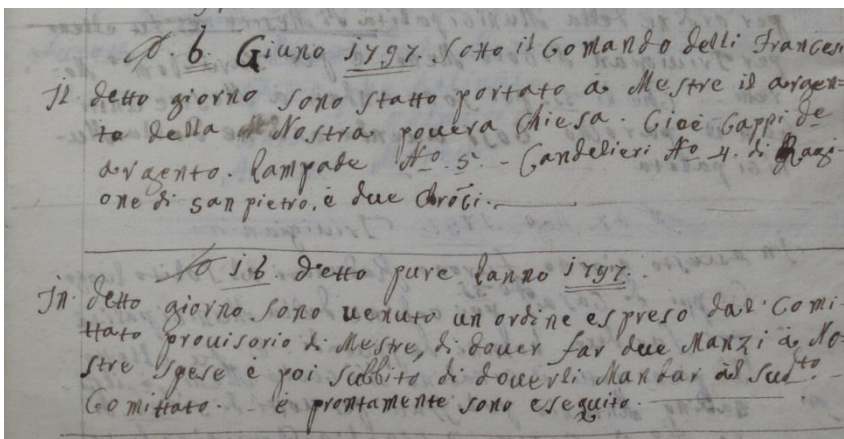 A. 6. Giuno 1797. Sotto il Comando delli Francesi
Il detto giorno sono statto portato à Mestre il argen=
to della Nostra povera Chiesa. Cioè Cappi de
argento. Lampade No. 5. - Candelieri No. 4. di Ragi-
one di San pietro, è due Croci.
A 16. detto pure lanno 1797.
In detto giorno sono venuto un ordine espreso dal Comi-
ttato provisorio di Mestre, di dover far due Manzi à No=
stre Spese è poi subbito di doverli Mandar al sudto
Comittato. - è prontamente sono esequito.